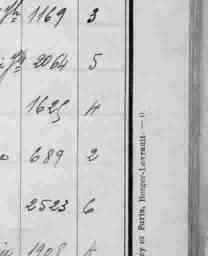 1169 3
2064 5
1625 4
689 2
2523 6
1908
ry et Paris, Berger-Levrault. — 0